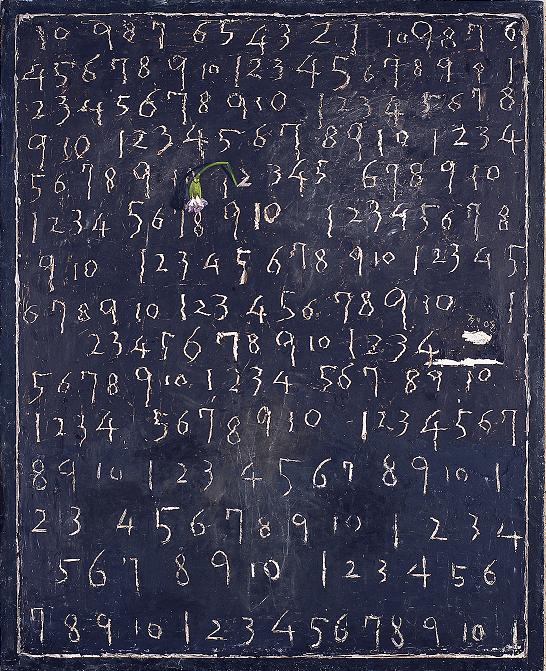 10 9 8 7 6 5 4 3 2 1 10 9 8 7 6
4 5 6 7 8 9 10 1 2 3 4 5 6 7 8 9 1
2 3 4 5 6 7 8 9 10 1 2 3 4 5 6 7 8
9 10 1 2 3 4 5 6 7 8 9 10 1 2 3 4
5 6 7 8 9 1 2 3 4 5 6 7 8 9 10
1 2 3 4 5 6 8 9 10 1 2 3 4 5 6 7 8
9 10 1 2 3 4 5 6 7 8 9 10 1 2 3 4 5
6 7 8 9 10 1 2 3 4 5 6 7 8 9 10 1
2 3 4 5 6 7 8 9 10 1 2 3 4
5 6 7 8 9 10 1 2 3 4 5 6 7 8 9 10
1 2 3 4 5 6 7 8 9 10 1 2 3 4 5 6 7
8 9 10 1 2 3 4 5 6 7 8 9 10 1
2 3 4 5 6 7 8 9 10 1 2 3 4
5 6 7 8 9 10 1 2 3 4 5 6
7 8 9 10 1 2 3 4 5 6 7 8 9 10 1